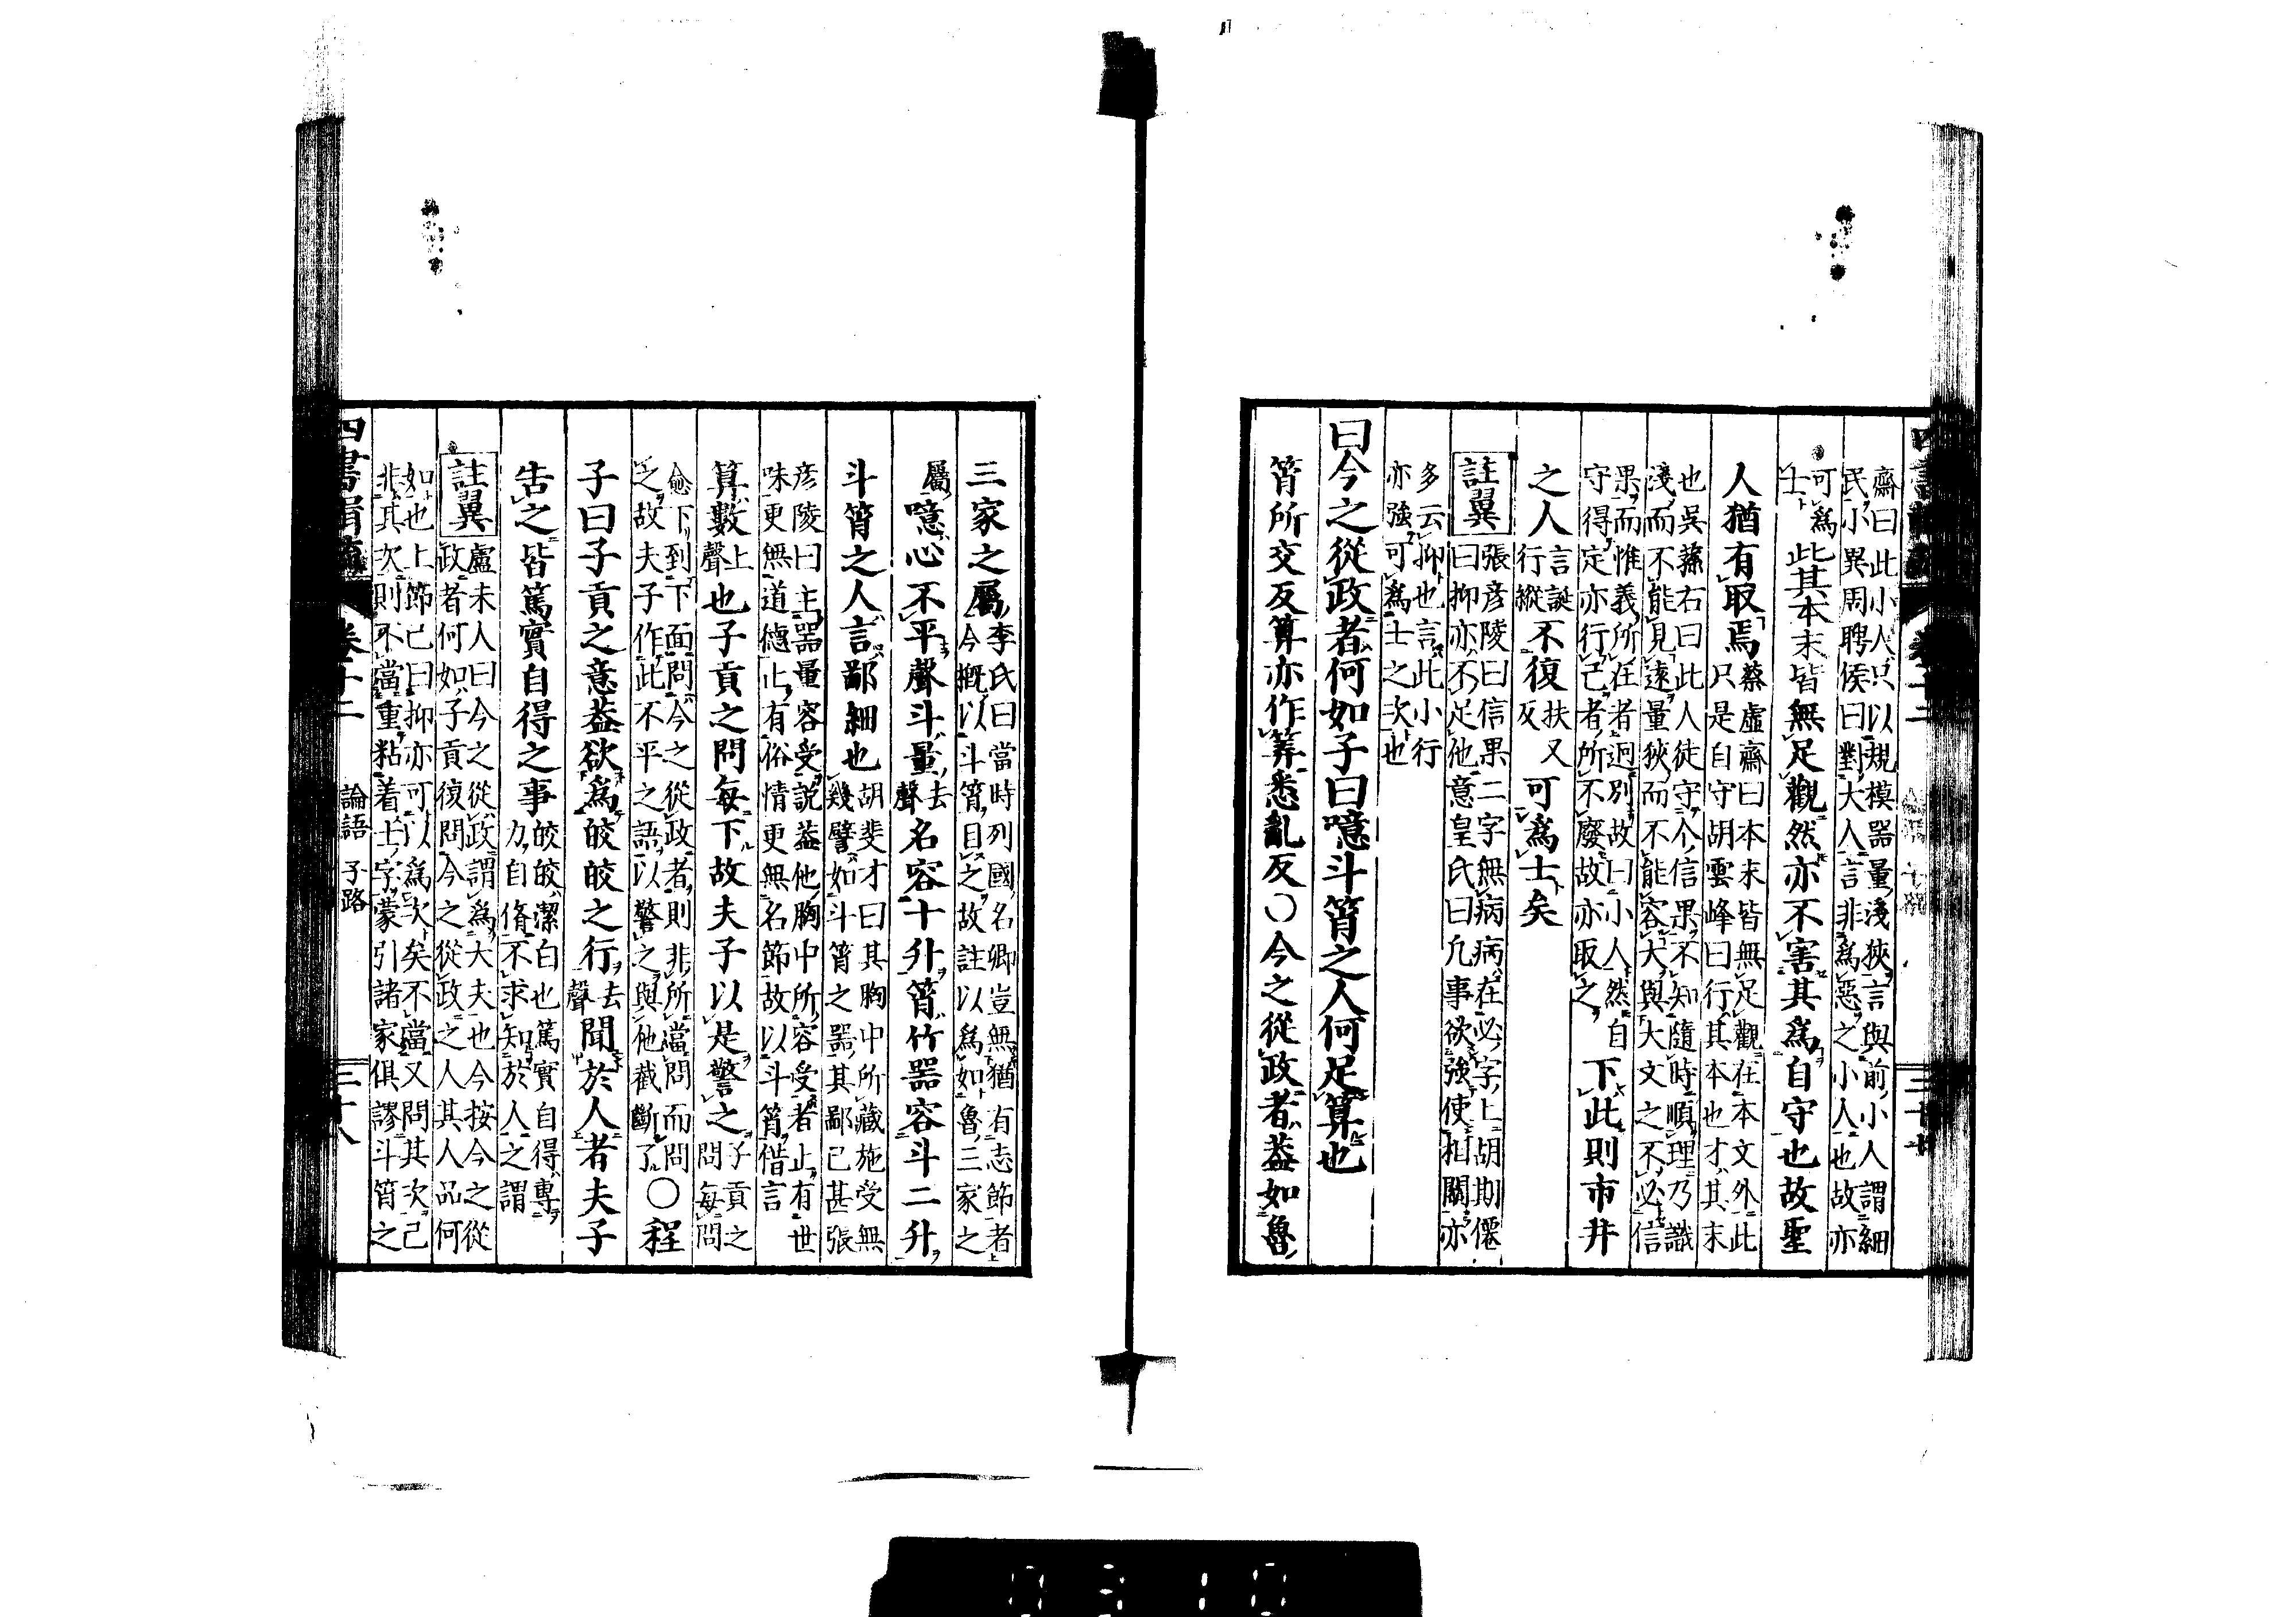 齋曰此小人只以規模器量淺狹言與前小人謂細
民小異周聘侯曰對大人言非爲惡之小人也故亦
可爲
士
此其本末皆無足觀然亦不害其爲自守也故聖
人猶有取焉
蔡虛齋曰本末皆無足觀在本文外此
只是自守胡雲峰曰行其本也才其末
也吳蓀右曰此人徒守个信果不知隨時順理乃識
淺而不能見遠量狹而不能容大與大文之不必信
果而惟義所在者迥別故曰小人然自
守得定亦行己者所不廢故亦取之
下此則市井
之人
言誕
行縱
不復
扶又
反
可爲士矣
註翼
張彦陵曰信果二字無病病在必字上胡期僊
曰抑亦不足他意皇氏曰凡事欲強使相關亦
多云抑也言此小行
亦強可爲士之次也
曰今之從政者何如子曰噫斗筲之人何足算也
筲所交反算亦作筭悉亂反○今之從政者葢如魯
三家之屬
李氏曰當時列國名卿豈無猶有志節者
今概以斗筲目之故註以爲如魯三家之
屬
噫心不平聲斗量
去
聲
名容十升筲竹器容斗二升
斗筲之人言鄙細也
胡斐才曰其胸中所藏施受無
幾譬如斗筲之器其鄙已甚張
彦陵曰主器量容受說葢他胸中所容受者止有世
味更無道德止有俗情更無名節故以斗筲借言
算數
上
聲
也子貢之問每下故夫子以是警之
子貢之
問每問
愈下到下面問今之從政者則非所當問而問
之故夫子作此不平之語以警之與他截斷了
○程
子曰子貢之意葢欲爲皎皎之行
去
聲
聞於人者夫子
告之皆篤實自得之事
皎皎潔白也篤實自得專
力自脩不求知於人之謂
註翼
盧未人曰今之從政謂爲大夫也今按今之從
政者何如子貢復問今之從政之人其人品何
如也上節己曰抑亦可以爲次矣不當又問其次己
非其次則不當重粘着士字蒙引諸家俱謬斗筲之
四書
卷十二
論語
子路
三十八